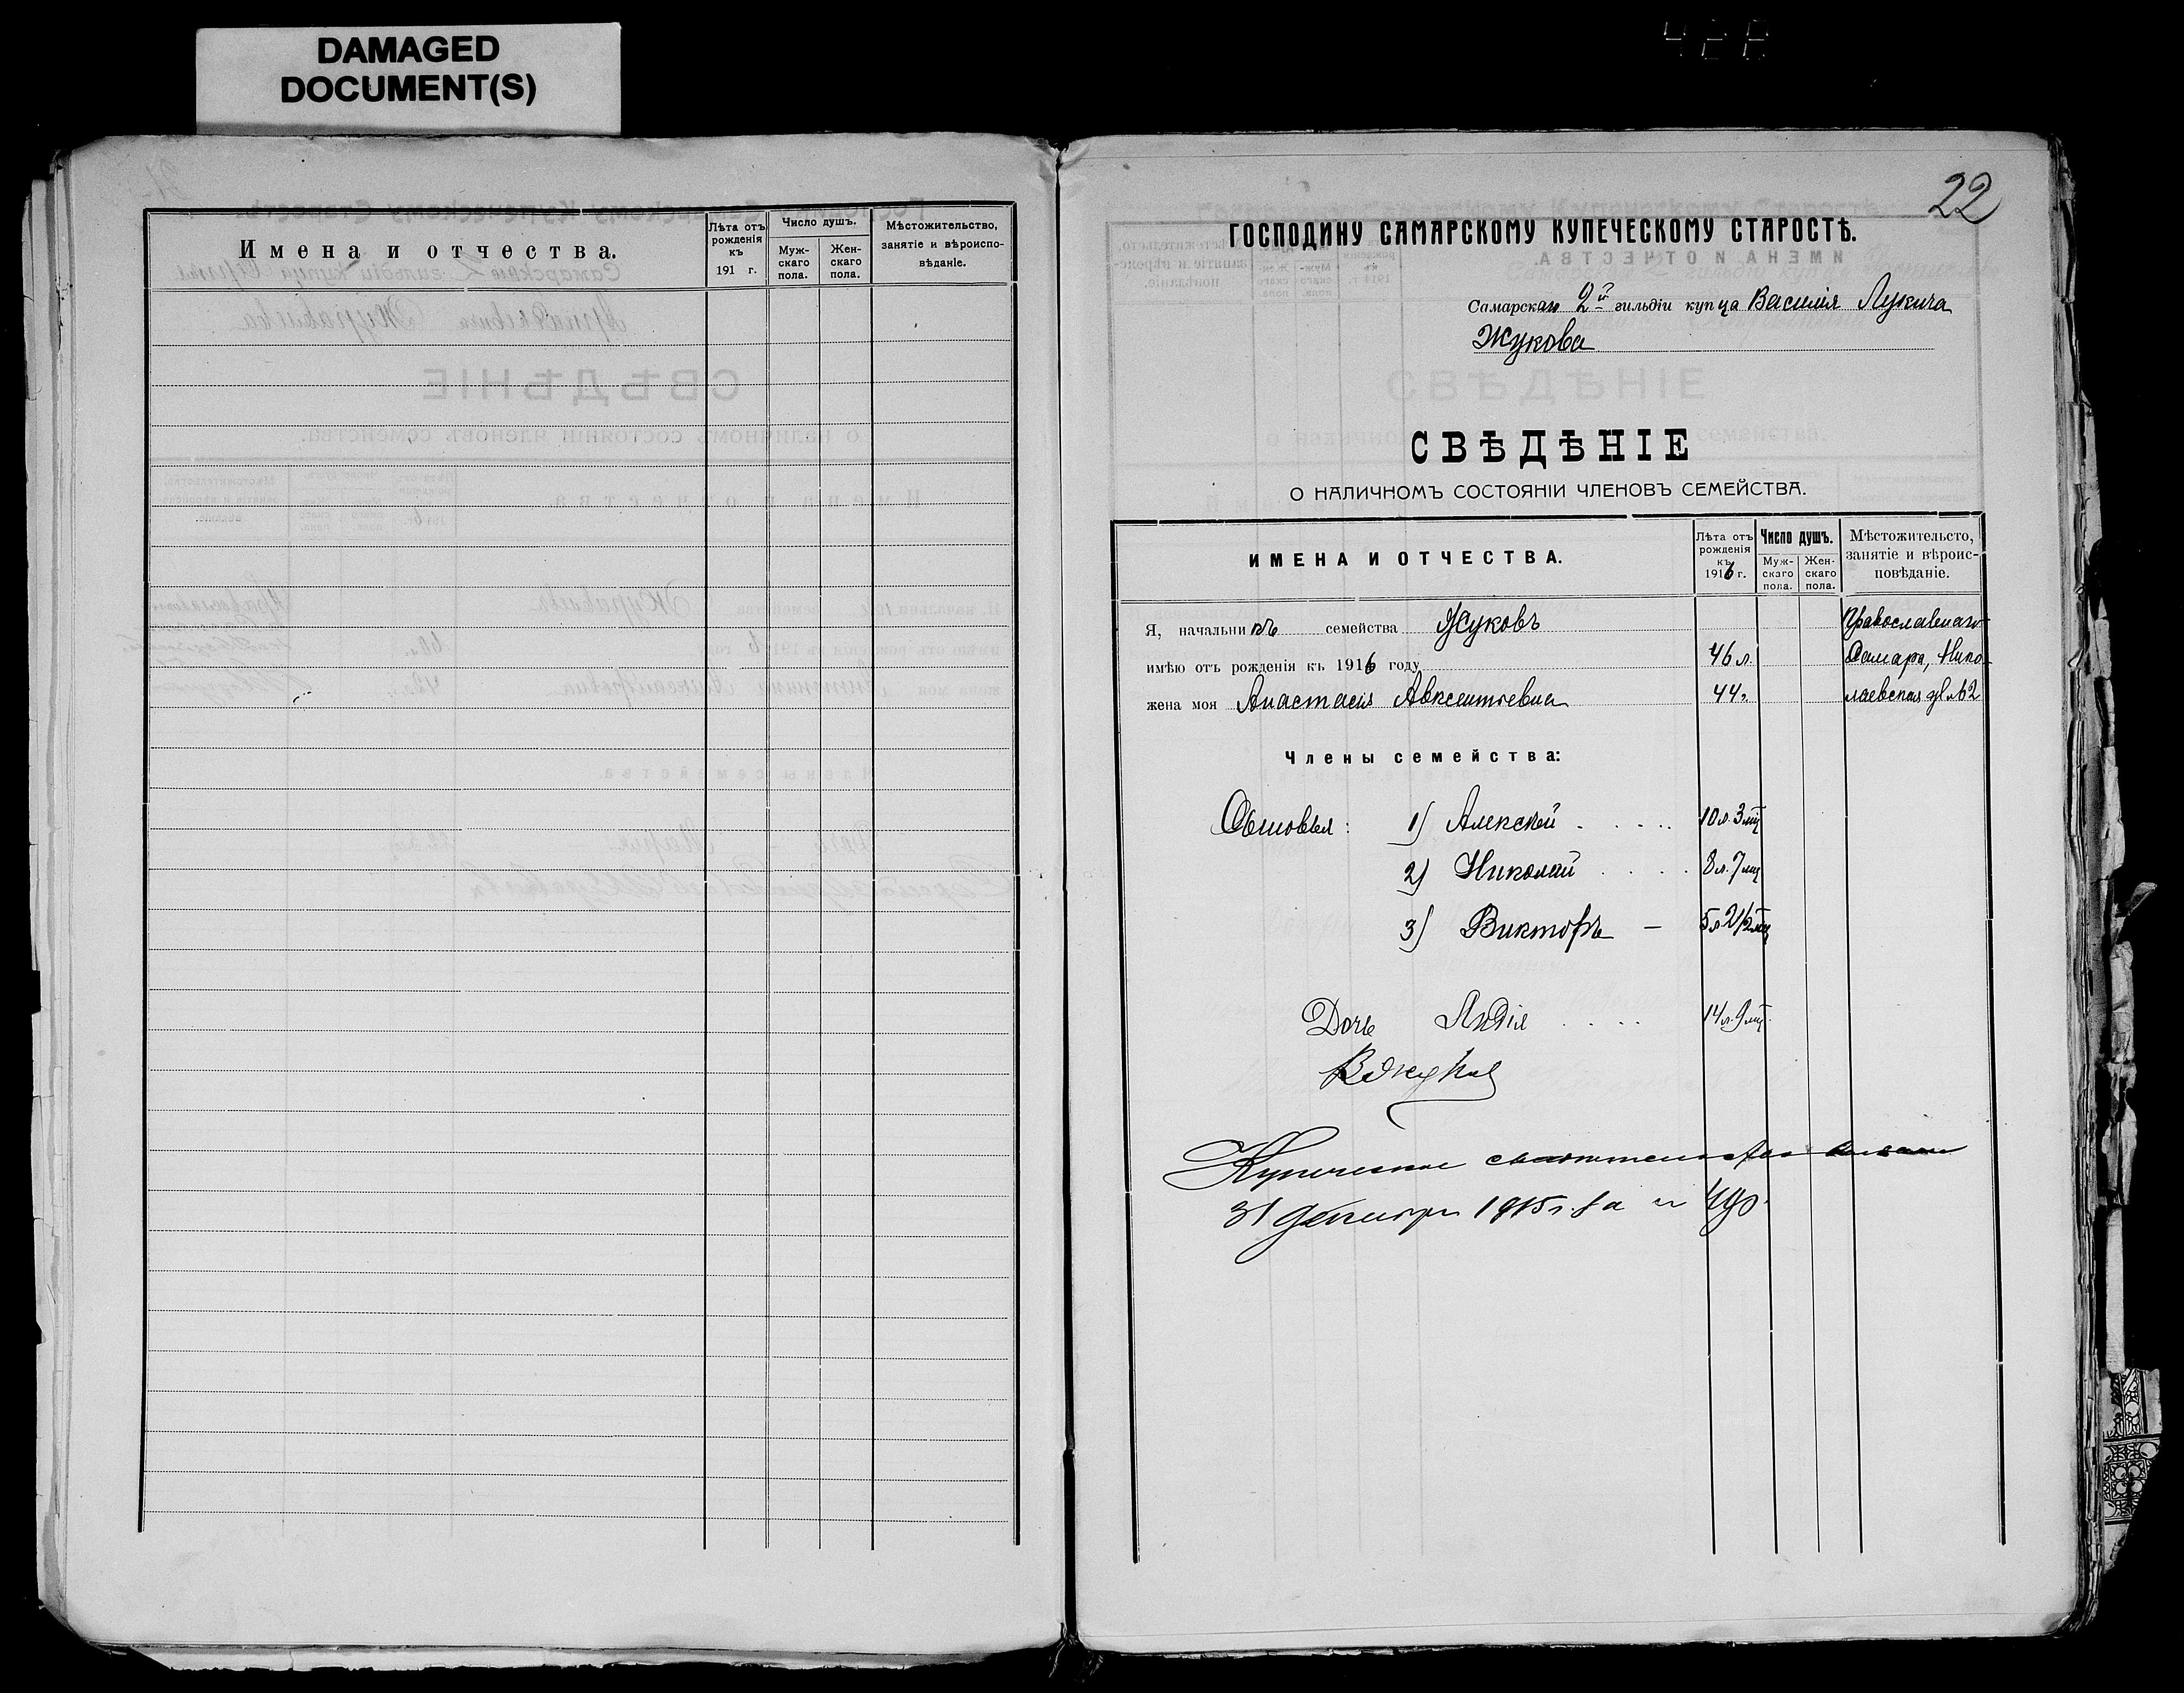 DAMAGED
DOCUMENT(S)
Имена и отчества.
Лѣта отъ рожденія къ 191 г.
Число душъ.
Муж-скаго пола.
Жен-скаго пола.
Мѣстожительство, занятіе и вѣроиспо-вѣданіе.
22
ГОСПОДИНУ САМАРСКОМУ КУПЕЧЕСКОМУ СТАРОСТѢ.
Самарскаго 2й гильдіи купца Василія Лукича
Жукова
СВѢДѢНІЕ
О НАЛИЧНОМЪ СОСТОЯНІИ ЧЛЕНОВЪ СЕМЕЙСТВА.
ИМЕНА И ОТЧЕСТВА.
Лѣта отъ рожденія къ 1916 г.
Число душъ.
Муж-скаго пола.
Жен-скаго пола.
Мѣстожительсто, занятіе и вѣроис-повѣданіе.
Я, начальникъ семейства Жуковъ Православнаго
имѣю отъ рожденія къ 1916 году 46 л. Самара, Нико-
жена моя Анастасія Авксентьевна 44 г. лаевская ул № 2
Члены семейства:
Сыновья: 1) Алексѣй 10 л. 3 мц
2) Николай 8 л. 7 мц
3) Викторъ — 5 л 2 1/2 мц
Дочь Лидія 14 л. 9 мц.
В Жуков
Купеческое свидетельство
31 декабря 1915 г. за №